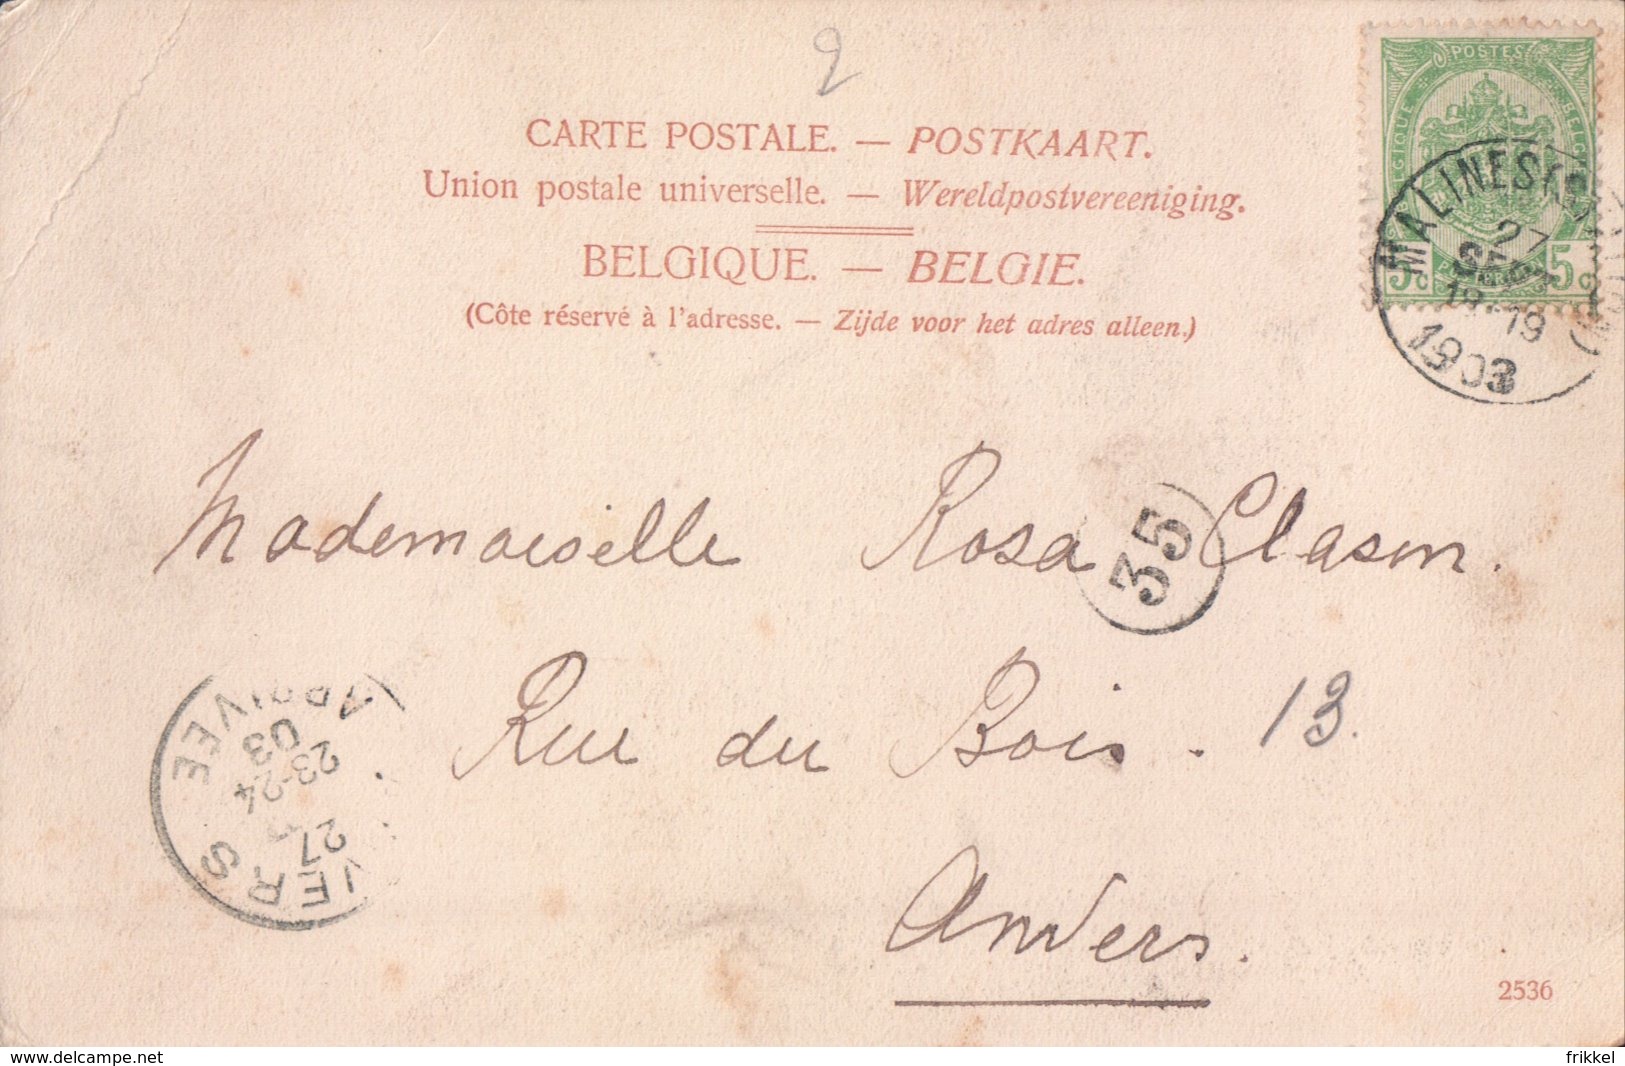 2
CARTE POSTALE. — POSTKAART.
Union postale universelle. — Wereldpostvereeniging.
BELGIQUE. — BELGIE.
(Côte réservé à l'adresse. — Zijde voor het adres alleen.)
POSTES
5c 5c
MALINES
27
SEPT
1903
Mademoiselle Rosa Clasen.
35
Rue du Bois. 13.
Anvers.
ARRIVEE
03
23-24
27
IERS
2536
www.delcampe.net
frikkel